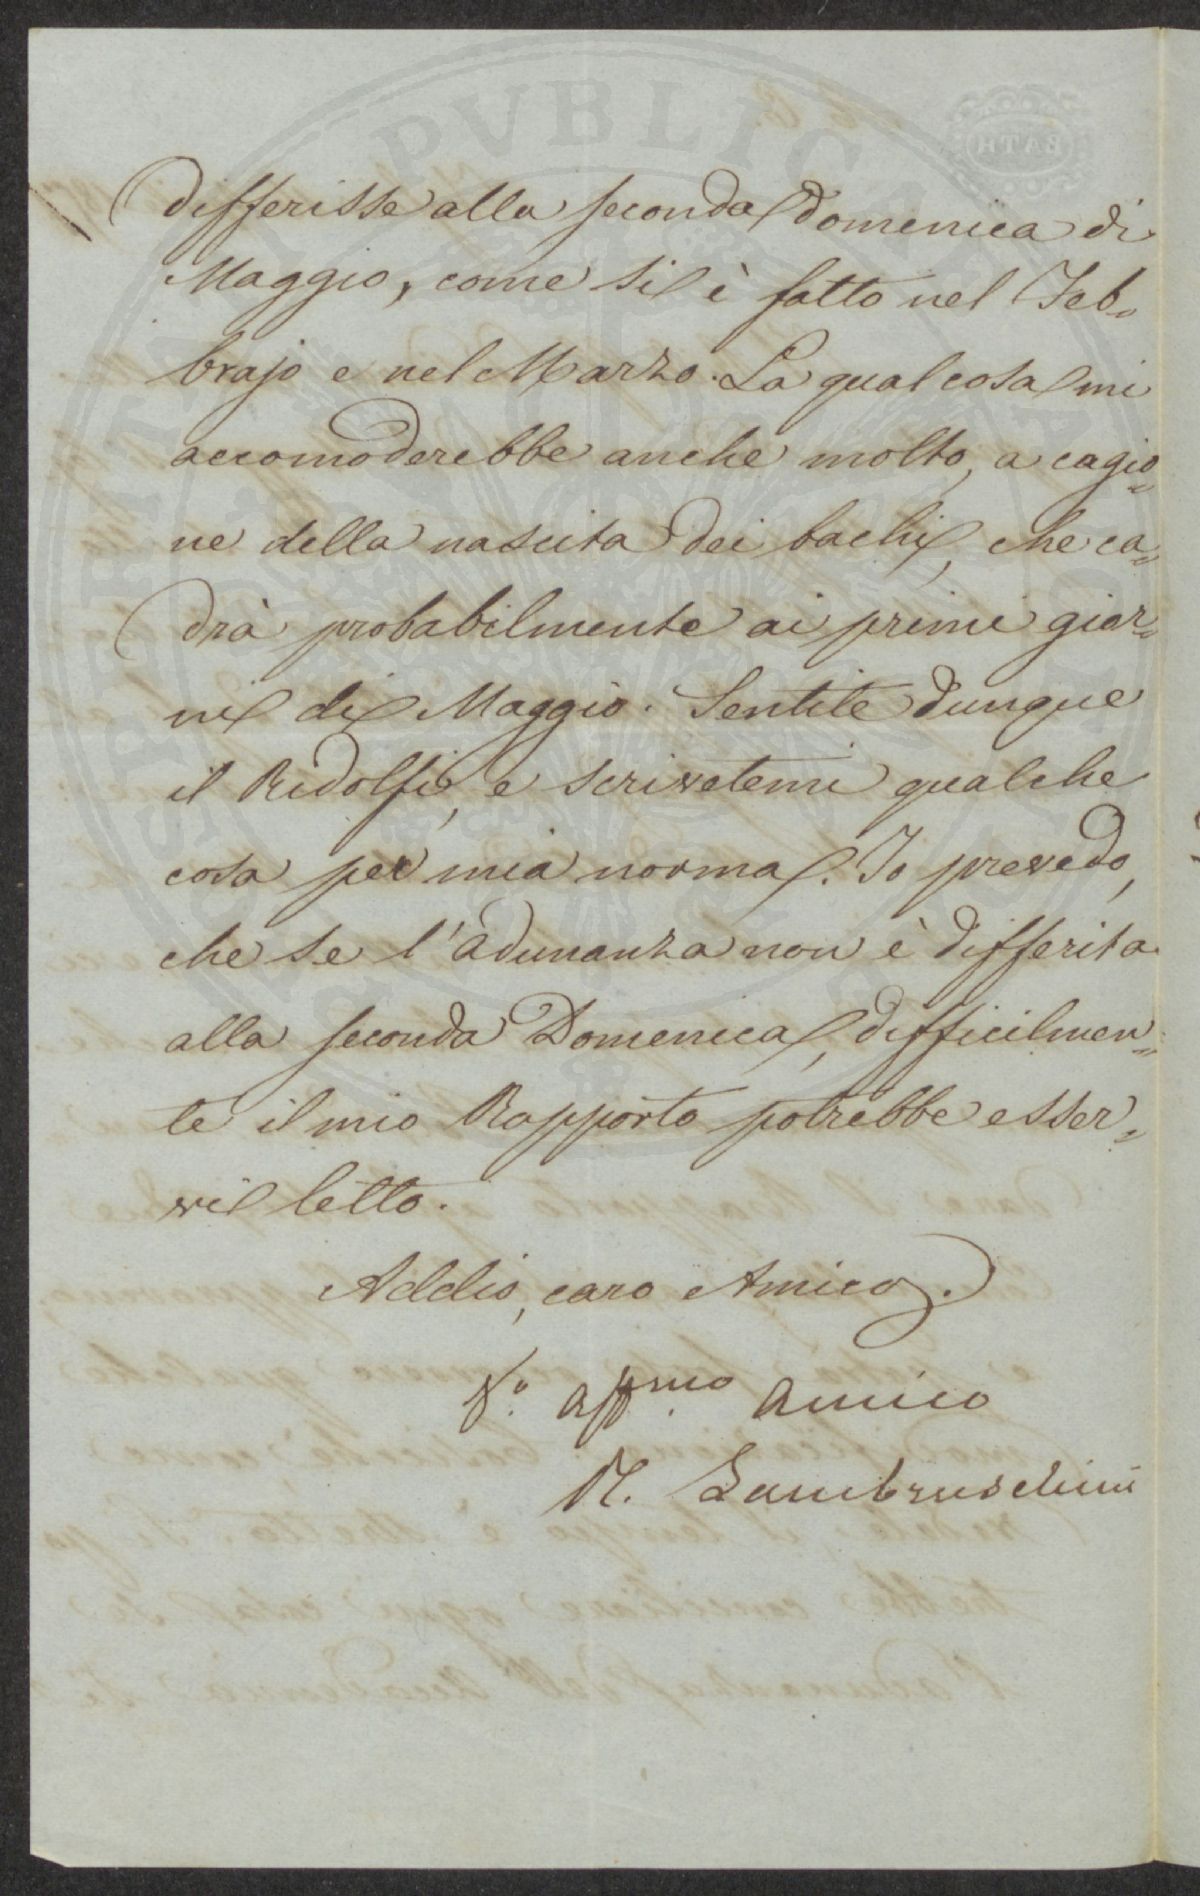 differisse alla seconda Domenica di
Maggio, come si è fatto nel Feb=
brajo e nel Marzo. La qual cosa mi
accomoderebbe anche molto, a cagio=
ne della nascita dei bachi, che ca=
drà probabilmente ai primi gior=
ni di Maggio. Sentite dunque
il Ridolfi, e scrivetemi qualche
cosa per mia norma. Io prevedo,
che se l'adunanza non è differita
alla seconda Domenica, difficilmen=
te il mio Rapporto potrebbe esser=
vi letto.
Addio, caro Amico.
V.º aff.mo amico
R. Lambruschini